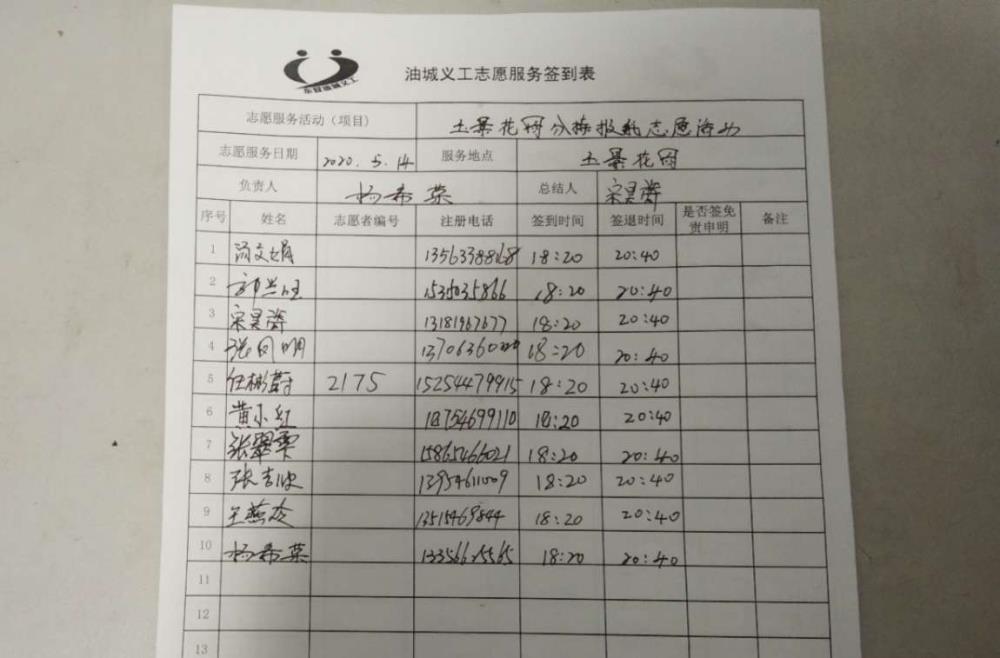 东营油城义工
油城义工志愿服务签到表
志愿服务活动（项目） 土景花园分拣报纸志愿活动
志愿服务日期 2020.5.14 服务地点 土景花园
负责人 杨希荣 总结人 宋昊霖
序号 姓名 志愿者编号 注册电话 签到时间 签退时间 是否签免责申明 备注
1 汤文娟 13563388168 18:20 20:40
2 18:20 20:40
3 宋昊霖 13181967677 18:20 20:40
4 张凤明 18:20 20:40
5 任彬蔚 2175 15254479915 18:20 20:40
6 黄小红 18754699110 18:20 20:40
7 张翠荣 15865466021 18:20 20:40
8 张吉 13954611009 18:20 20:40
9 王燕 13515469844 18:20 20:40
10 杨希荣 18:20 20:40
11
12
13